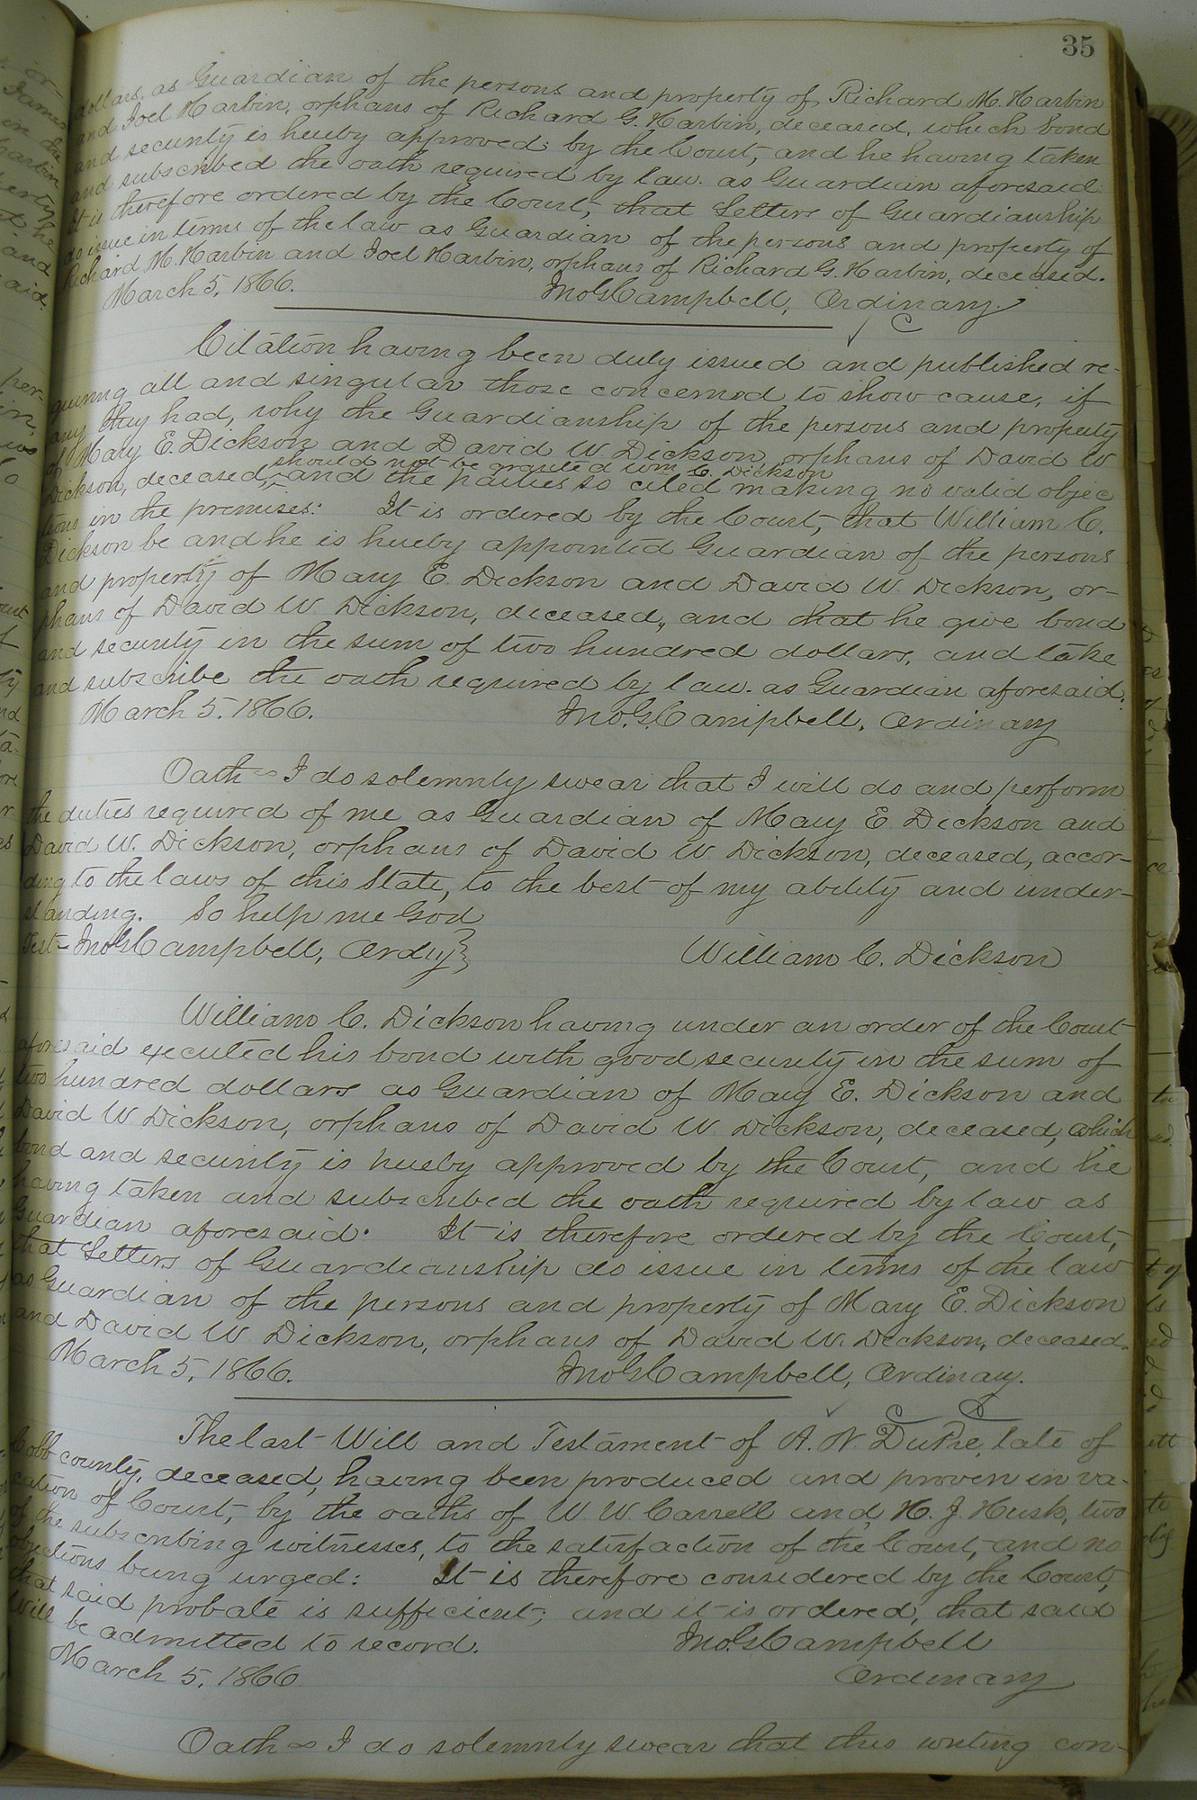 35
dollars, as Guardian of the persons and property of Richard M. Harbin
and Joel Harbin, orphans of Richard G. Harbin, deceased, which bond
and security is hereby approved by the Court, and he having taken
and subscribed the oath required by law as Guardian aforesaid
It is therefore ordered by the Court, that Letters of Guardianship
do issue in terms of the law as Guardian of the persons and property of
Richard M. Harbin and Joel Harbin, orphans of Richard G. Harbin, deceased.
March 5, 1866. Jno G Campbell, Ordinary
Citation having been duly issued and published re-
quiring all and singular those concerned to show cause, if
any they had, why the Guardianship of the persons and property
of Mary E. Dickson and David W. Dickson, orphans of David W
should not be granted Wm C. Dickson
Dickson, deceased, and the parties so cited making no valid objec
tions in the premises: It is ordered by the Court, that William C.
Dickson be and he is hereby appointed Guardian of the persons
and property of Mary E. Dickson and David W. Dickson, or-
phans of David W. Dickson, deceased, and that he give bond
and security in the sum of two hundred dollars, and take
and subscribe the oath required by law as Guardian aforesaid.
March 5. 1866. Jno. G. Campbell, Ordinary
Oath I do solemnly swear that I will do and perform
the duties required of me as Guardian of Mary E Dickson and
David W. Dickson, orphans of David W Dickson, deceased, accor-
ding to the laws of this State, to the best of my ability and under-
standing. So help me God
Test- Jno G Campbell, Ordny } William C. Dickson
William C. Dickson having under an order of the Court
aforesaid executed his bond with good security in the sum of
two hundred dollars as Guardian of Mary E. Dickson and
David W Dickson, orphans of David W. Dickson, deceased, which
bond and security is hereby approved by the Court, and he
having taken and subscribed the oath required by law as
Guardian aforesaid. It is therefore ordered by the Court,
that Letters of Guardianship do issue in terms of the law
as Guardian of the persons and property of Mary E. Dickson
and David W. Dickson, orphans of David W. Dickson, deceased.
March 5, 1866. Jno G Campbell, Ordinary.
The last Will and Testament of A. N. DuPre, late of
Cobb county, deceased, having been produced and proven in va-
cation of Court, by the oaths of W. W. Carrell and H. J. Husk, two
of the subscribing witnesses, to the satisfaction of the Court, and no
objections being urged: It is therefore considered by the Court,
that said probate is sufficient, and it is ordered, that said
Will be admitted to record. Jno. G Campbell
March 5, 1866 Ordinary
Oath I do solemnly swear that this writing con-